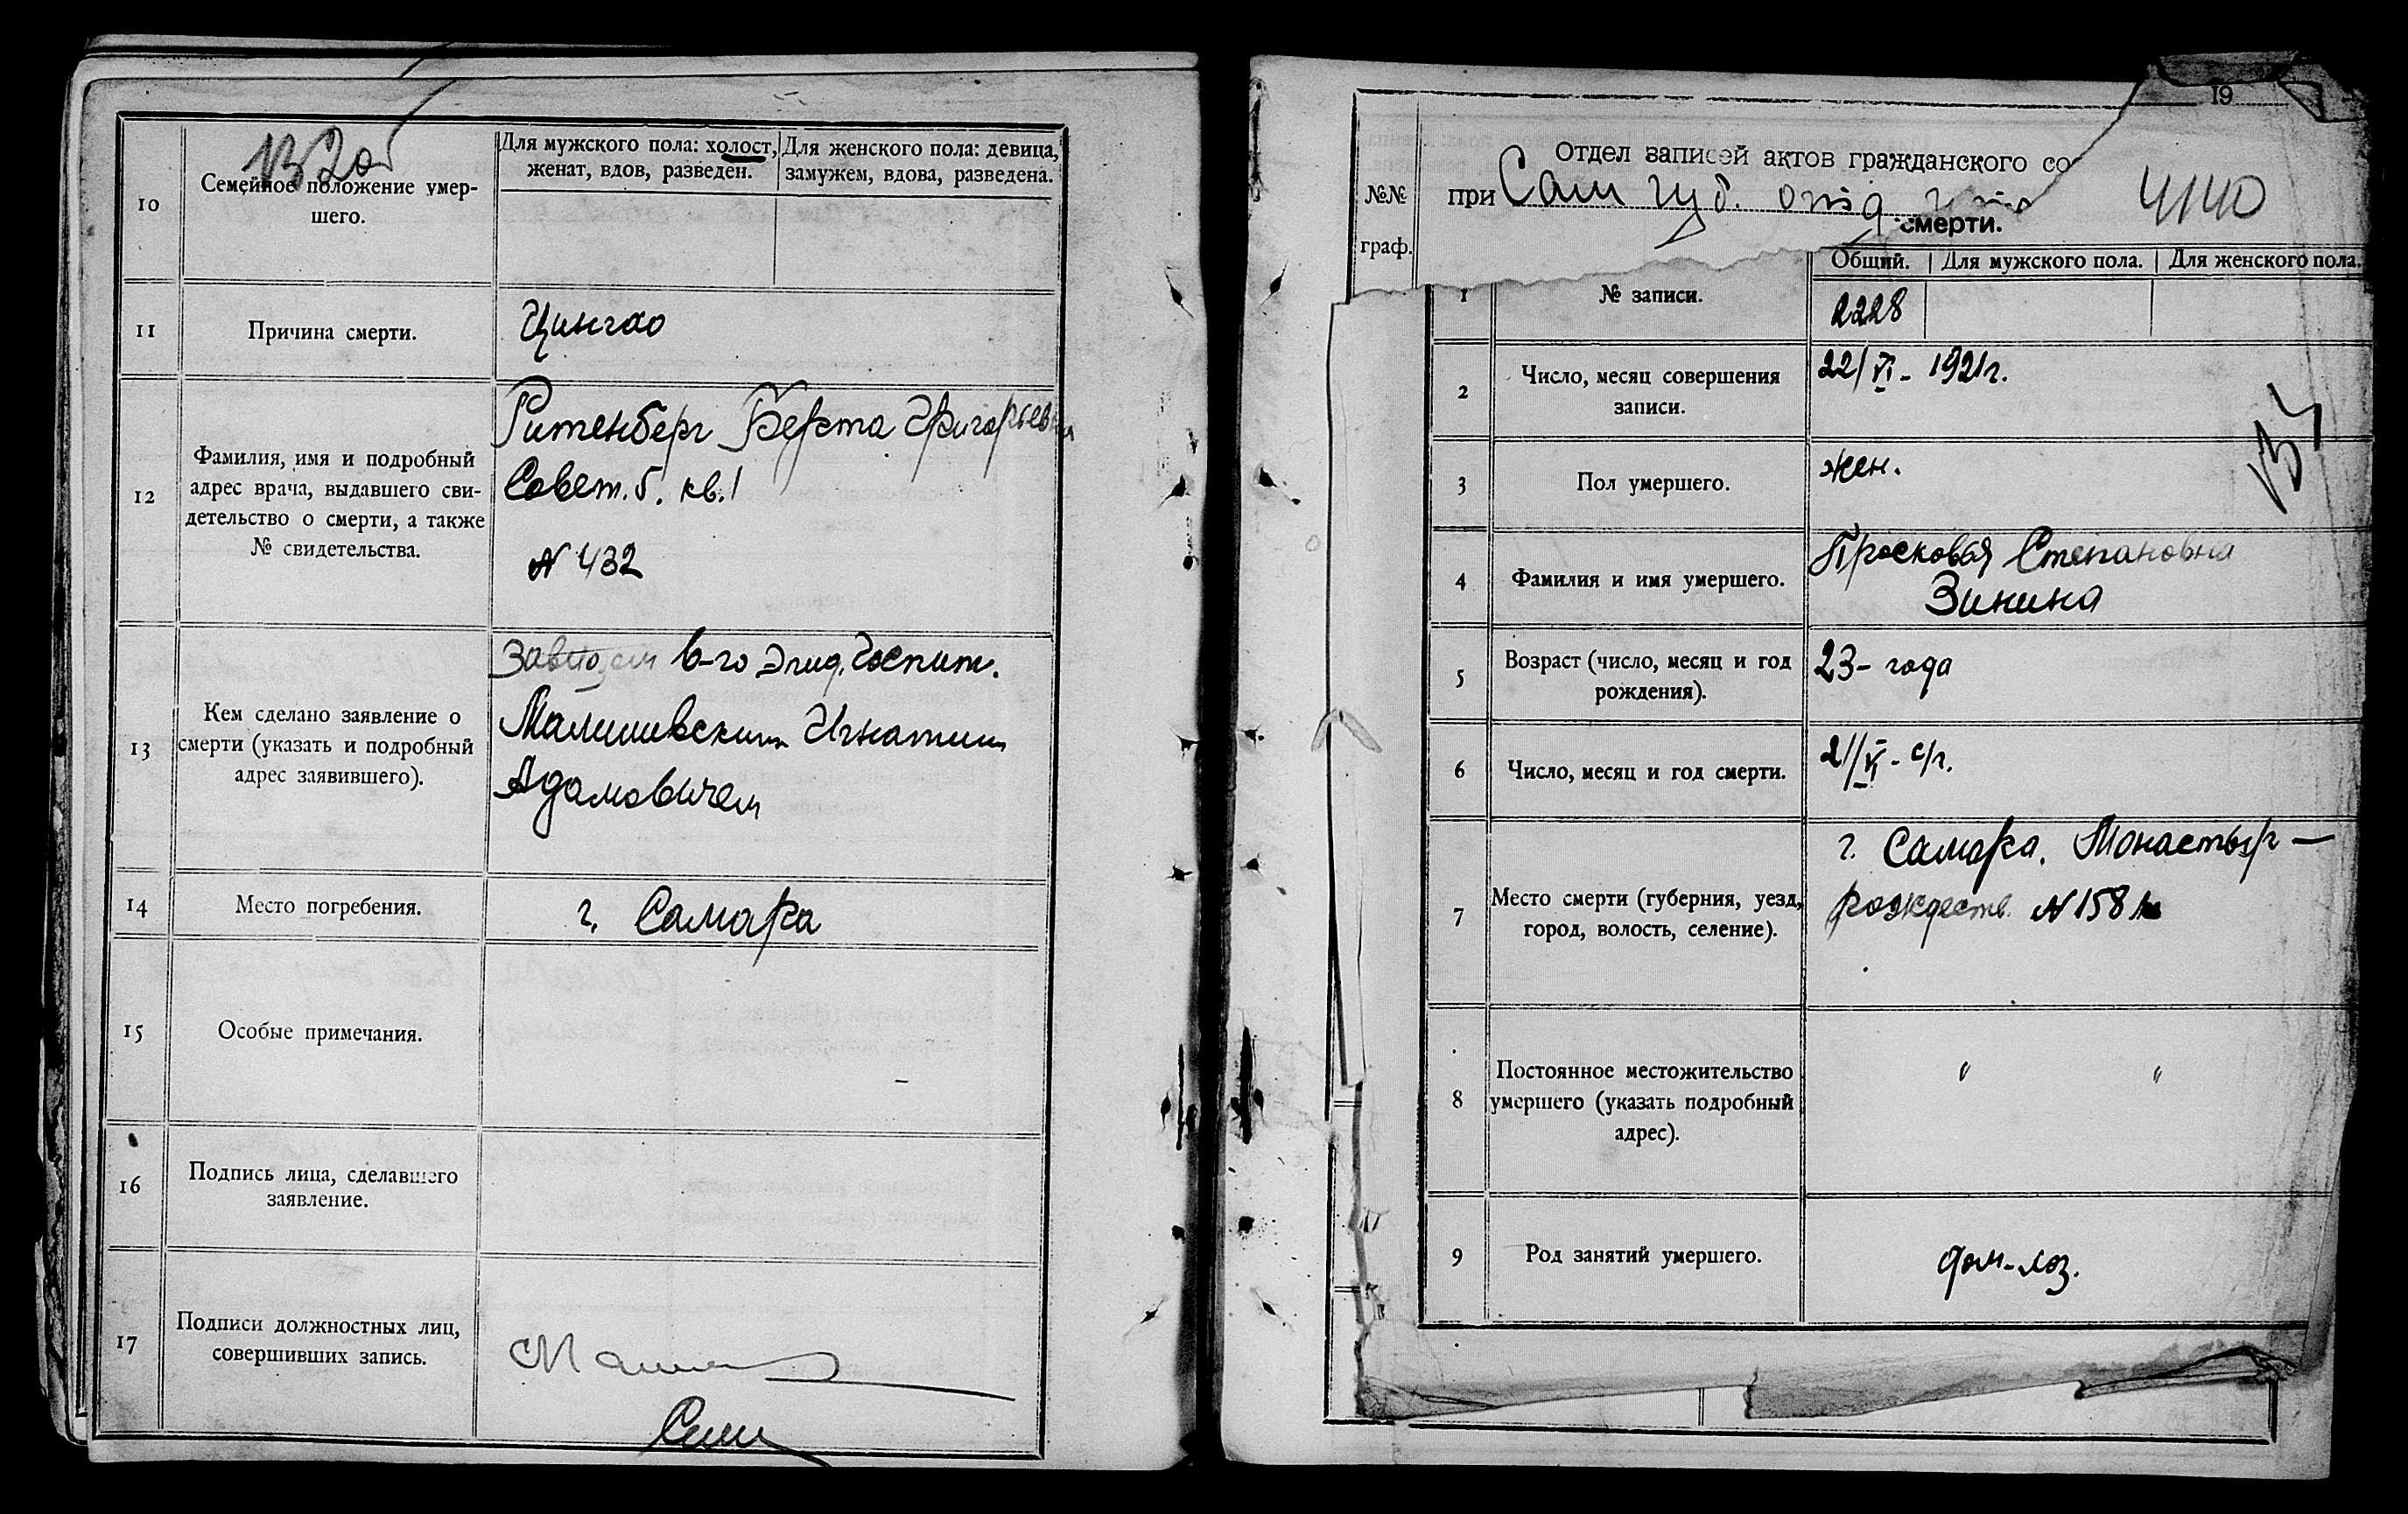 10
Семейное положение умер-
шего.
Для мужского пола: холост,
женат, вдов, разведен.
Для женского пола: девица,
замужем, вдова, разведена.
11
Причина смерти.
Цинга
12
Фамилия, имя и подробный
адрес врача, выдавшего сви-
детельство о смерти, а также
№ свидетельства.
Ритенберг Берта Григорьевна
Совет. 5. кв. 1
N 432
13
Кем сделано заявление о
смерти (указать и подробный
адрес заявившего).
6-го Эпид. Госпит.
Малишевским Игнатием
Адамовичем
14
Место погребения.
г. Самара
15
Особые примечания.
16
Подпись лица, сделавшего
заявление.
17
Подписи должностных лиц,
совершивших запись.
19
Отдел записей актов гражданского со
№№
граф.
при Сам губ. отд
4140
смерти.
Общий.
Для мужского пола.
Для женского пола.
1
№ записи.
2228
2
Число, месяц совершения
записи.
22/VI - 1921г.
3
Пол умершего.
жен.
4
Фамилия и имя умершего.
Просковья Степановна
Зинина
5
Возраст (число, месяц и год
рождения).
23 - года
6
Число, месяц и год смерти.
21/VI - с/г.
7
Место смерти (губерния, уезд,
город, волость, селение).
г. Самара. Монастыр —
рождеств. N 158
8
Постоянное местожительство
умершего (указать подробный
адрес).
" "
9
Род занятий умершего.
дом-хоз.